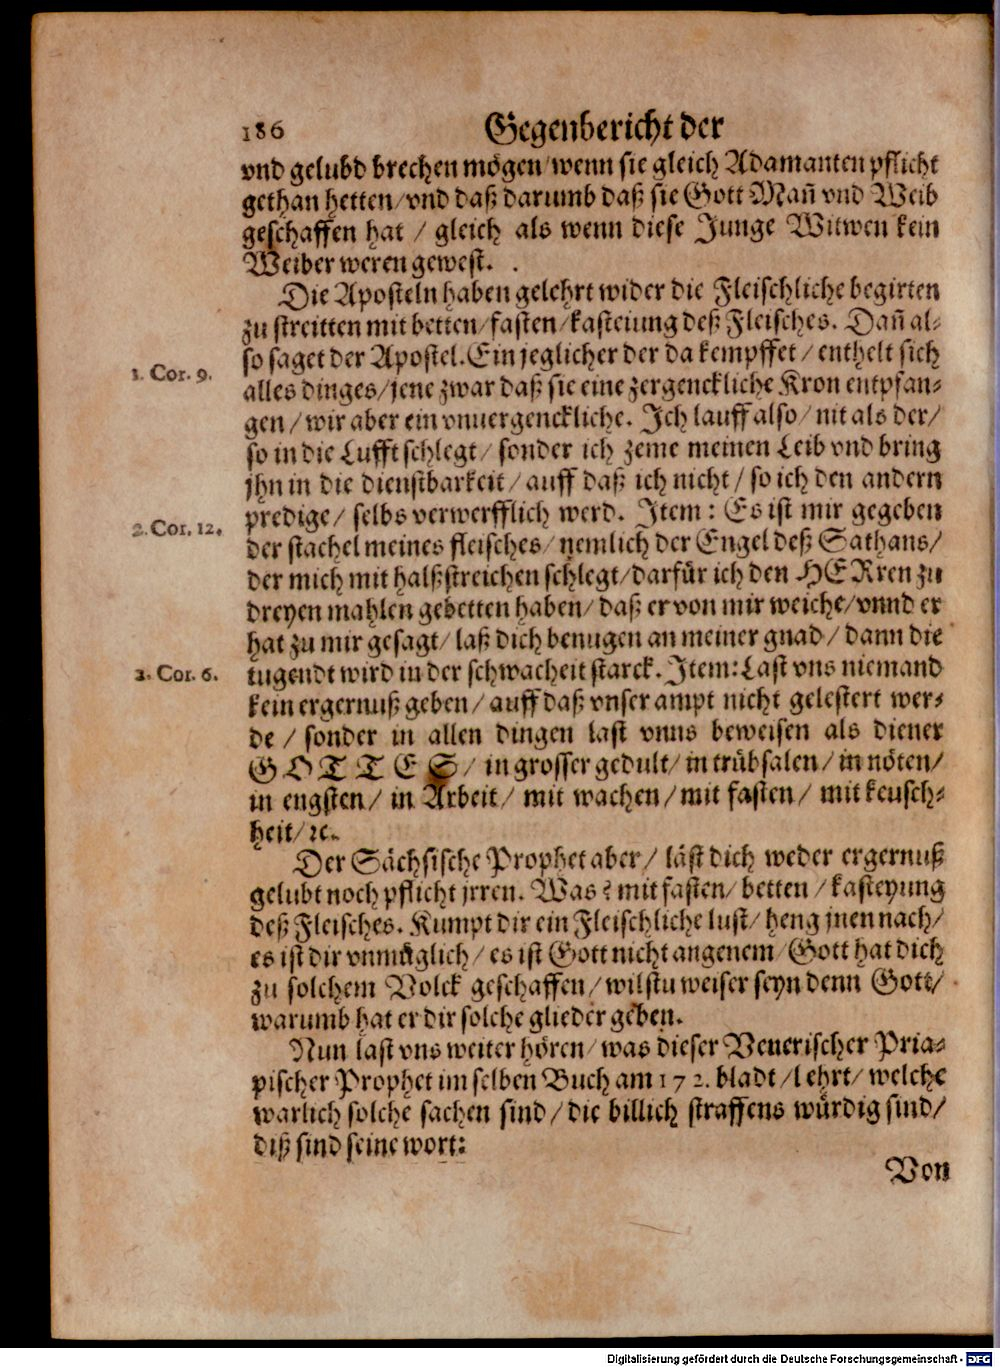 186 Gegenbericht der
vnd gelubd brechen mögen/wenn sie gleich Adamanten pflicht
gethan hetten/vnd daß darumb daß sie Gott Mañ vnd Weib
geschaffen hat / gleich als wenn diese Junge Witwen kein
Weiber weren gewest.
Die Aposteln haben gelehrt wider die Fleischliche begirten
zu streitten mit betten/fasten/kasteiung deß Fleisches. Dañ al-
so saget der Apostel. Ein jeglicher der da kempffet / enthelt sich
1. Cor. 9.
alles dinges/jene zwar daß sie eine zergenckliche Kron entpfan-
gen / wir aber ein vnuergenckliche. Ich lauff also / nit als der/
so in die Lufft schlegt/ sonder ich zeme meinen Leib vnd bring
jhn in die dienstbarkeit/ auff daß ich nicht / so ich den andern
predige/ selbs verwerfflich werd. Item : Es ist mir gegeben
2. Cor. 12.
der stachel meines fleisches/ nemlich der Engel deß Sathans/
der mich mit halßstreichen schlegt/darfür ich den HERren zu
dreyen mahlen gebetten haben/ daß er von mir weiche/vnnd er
hat zu mir gesagt/ laß dich benugen an meiner gnad / dann die
tugendt wird in der schwacheit starck. Item: Last vns niemand
2. Cor. 6.
kein ergernuß geben / auff daß vnser ampt nicht gelestert wer-
de / sonder in allen dingen last vnns beweisen als diener
GOTTES/ in grosser gedult/ in trübsalen/ in nöten/
in engsten/ in Arbeit/ mit wachen/mit fasten/ mit keusch-
heit/ ꝛc.
Der Sächsische Prophet aber/ läst dich weder ergernuß
gelubt noch pflicht jrren. Was? mit fasten/ betten / kasteyung
deß Fleisches. Kumpt dir ein Fleischliche lust/ heng jnen nach/
es ist dir vnmüglich/ es ist Gott nicht angenem/ Gott hat dich
zu solchem Volck geschaffen/wilstu weiser seyn denn Gott/
warumb hat er dir solche glieder geben.
Nun last vns weiter hören/ was dieser Venerischer Pria-
pischer Prophet im selben Buch am 172. bladt/lehrt/ welche
warlich solche sachen sind/ die billich straffens würdig sind/
diß sind seine wort:
Von
Digitalisierung gefördert durch die Deutsche Forschungsgemeinschaft - DFG